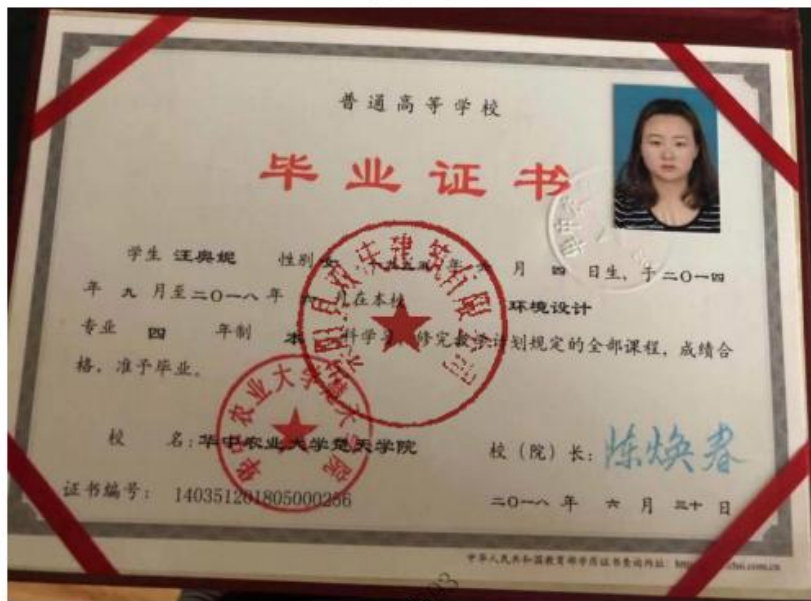 普通高等学校
毕业证书
学生 汪奥妮 性别 女, 一九九五 年 六 月 四 日生, 于 二〇一四
年 九 月至 二〇一八 年 六 月在本校 环境设计
专业 四 年制 本 科学习, 修完教学计划规定的全部课程, 成绩合
格, 准予毕业。
校 名: 华中农业大学楚天学院
校 (院) 长: 陈焕春
证书编号: 140351201805000256
二〇一八 年 六 月 三十 日
中华人民共和国教育部学历证书查询网址:
华中农业大学楚天学院